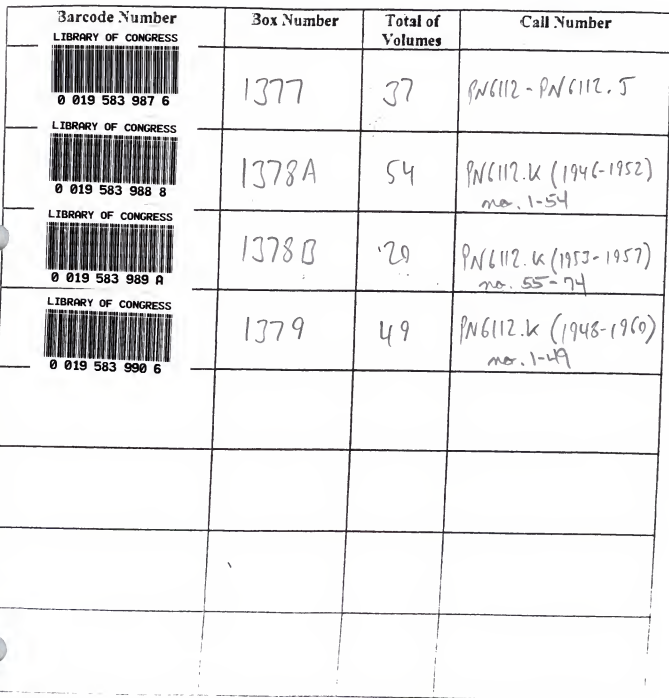 Barcode Number Box Number Total of Volumes Call Number
LIBRARY OF CONGRESS
0 019 583 987 6
1377 37 PN6112 - PN6112.J
LIBRARY OF CONGRESS
0 019 583 988 8
1378A 54 PN6112.K (1946-1952)
no. 1-54
LIBRARY OF CONGRESS
0 019 583 989 A
1378B 20 PN6112.K (1953-1957)
no. 55-74
LIBRARY OF CONGRESS
0 019 583 990 6
1379 49 PN6112.K (1948-1960)
no. 1-49